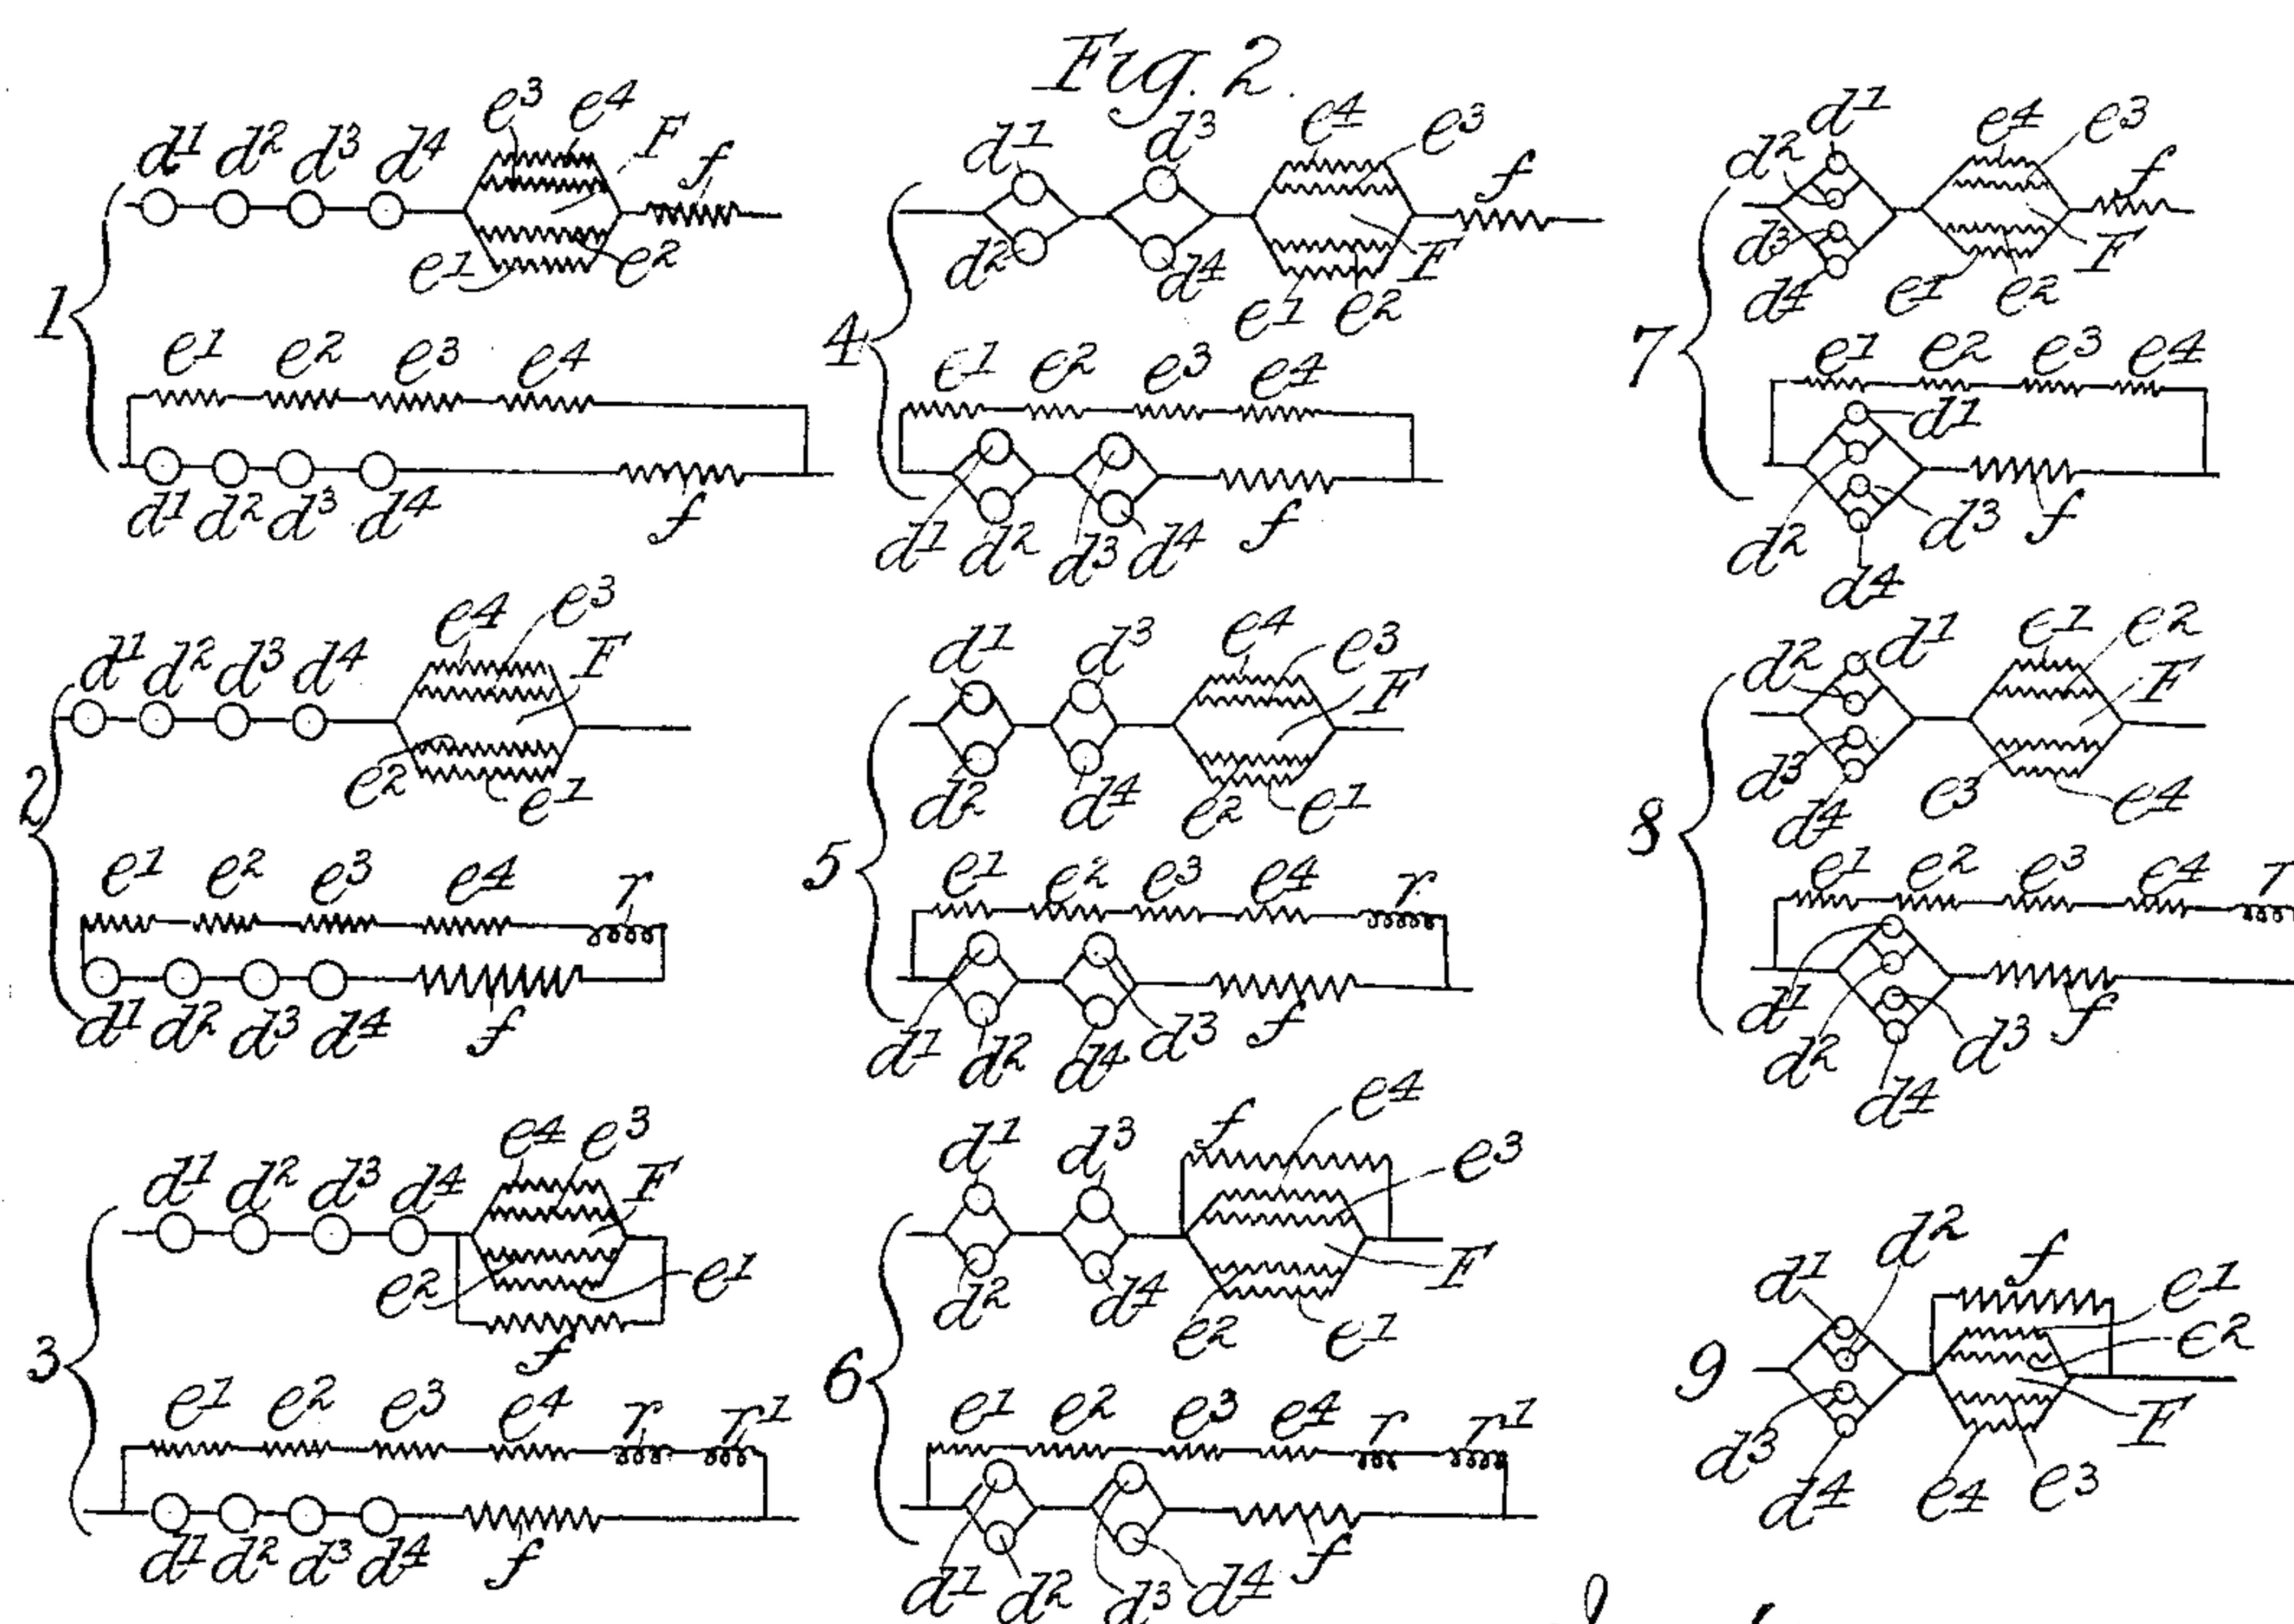 Fig. 2.
1
e3 e4 F f
d1 d2 d3 d4
e1 e2
e1 e2 e3 e4
d1 d2 d3 d4 f
2
e4 e3
d1 d2 d3 d4 F
e2 e1
e1 e2 e3 e4 r
d1 d2 d3 d4 f
3
e4 e3
d1 d2 d3 d4 F
e2 e1
f
e1 e2 e3 e4 r r1
d1 d2 d3 d4 f
4
d1 d3 e4 e3 f
d2 d4 F
e1 e2
e1 e2 e3 e4
d1 d2 d3 d4 f
5
d1 d3 e4 e3
F
d2 d4 e2 e1
e1 e2 e3 e4 r
d1 d2 d4 d3 f
6
d1 d3 f e4
e3
d2 d4 F
e2 e1
e1 e2 e3 e4 r r1
d1 d2 d3 d4 f
7
d1 e4 e3
d2 f
d3 F
d4 e1 e2
e1 e2 e3 e4
d1
d2 d3 f
d4
8
d2 d1 e1 e2
F
d3 e3 e4
d4
e1 e2 e3 e4 r
d1 d3 f
d2
d4
9
d2
d1 f e1
e2
d3 F
d4 e4 e3